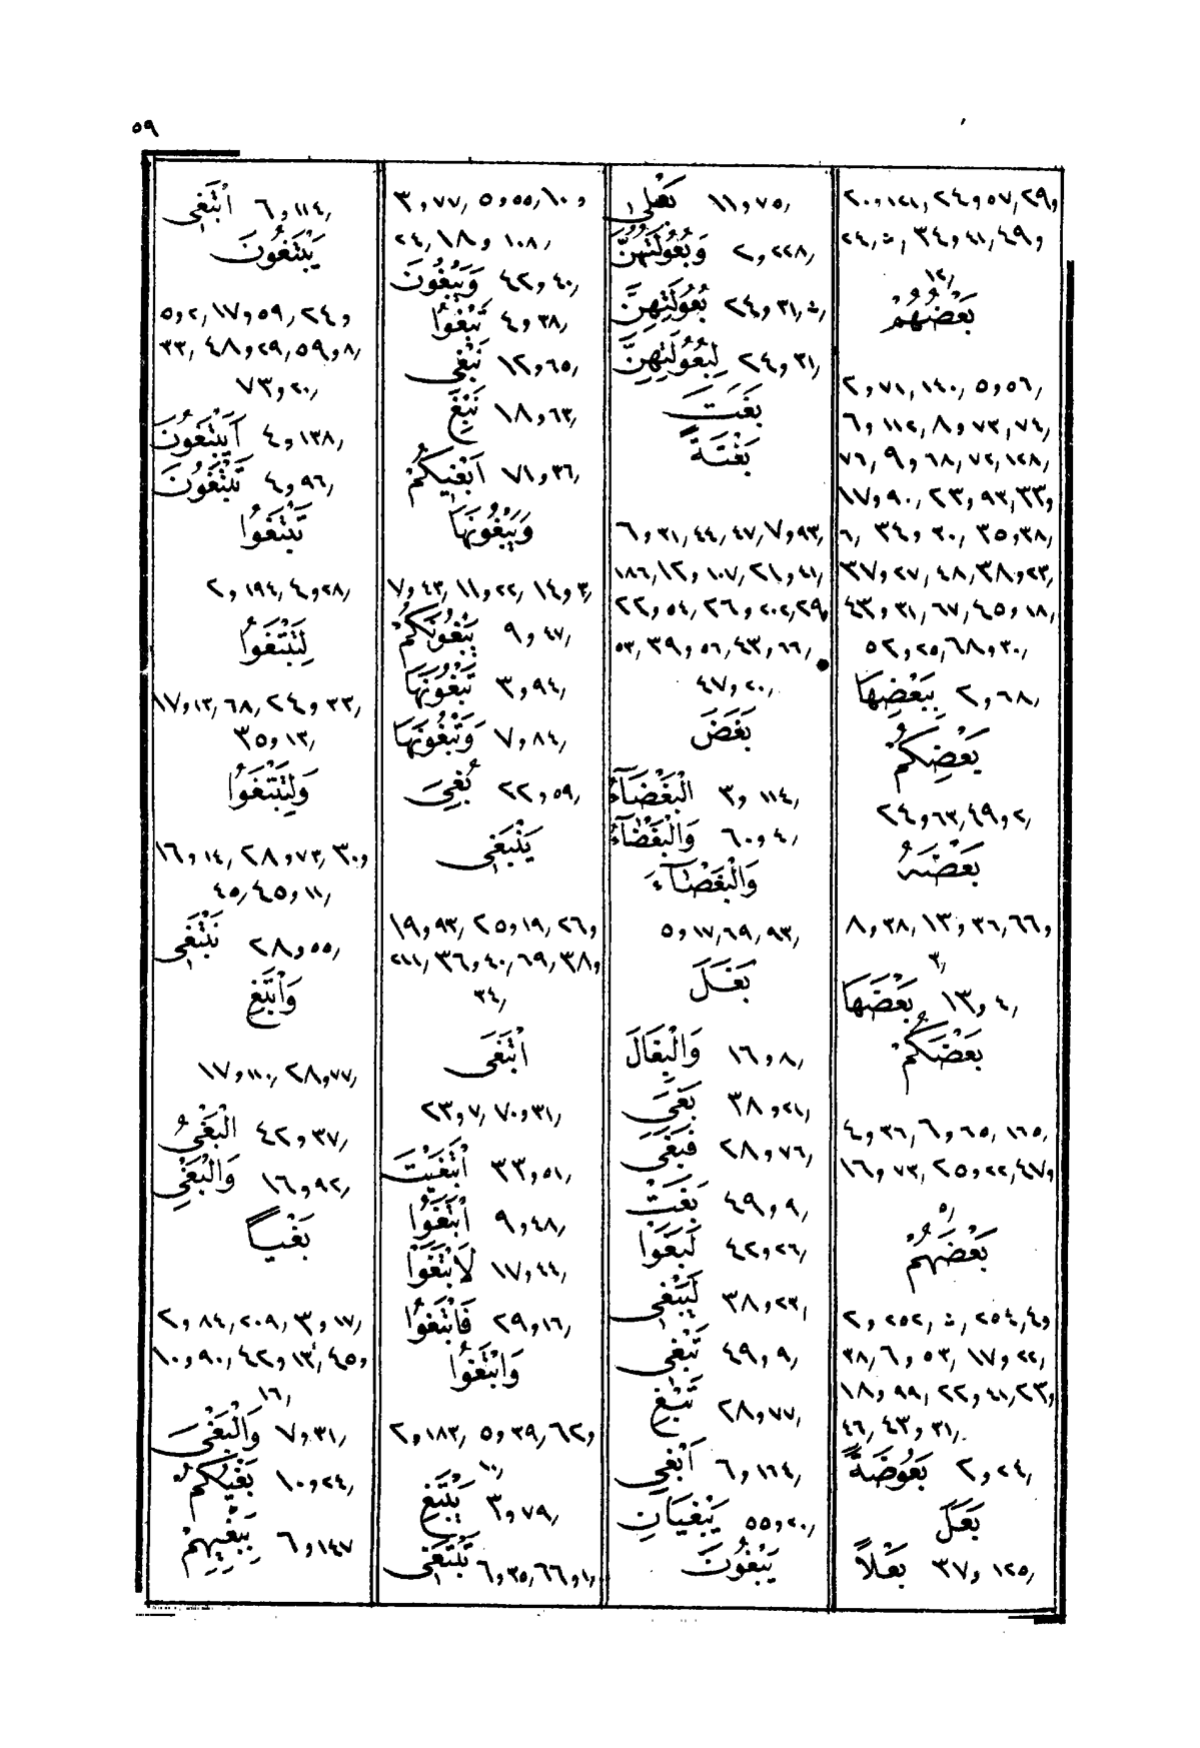 ٥٩
٢٠و١٢١, ٢٤و٥٧, ٢٩و
٢٤, ث, ٣٤و٤١, ٤٩و
١٢,
بَعْضُهُمْ
٢و٧١, ١٤٠, ٥و٥٦,
٦و١١٢, ٨و٧٣, ٧٤,
٧٦, ٩و٦٨, ٧٢, ١٢٨,
١٧و٩٠, ٢٣و٩٣, ٣٣و
٦, ٣٤و٣٠, ٣٥و٣٨,
٣٧و٢٧, ٤٨, ٣٨و٢٣,
٤٣و٣١, ٦٧, ٤٥و١٨,
٥٢و٢٥, ٦٨و٣٠,
بِبَعْضِهَا ٢و٦٨,
بَعْضِكُمْ
٢٤و٦٣, ٤٩و٢,
بَعْضَهُ
٨و٣٨, ١٣و٣٦, ٦٦و
٣,
بَعْضَهَا ١٣و٤,
بَعْضَكُمْ
٤و٣٦, ٦و٦٥, ١٦٥,
١٦و٧٣, ٢٥و٢٢, ٤٧و
٥,
بَعْضَهُمْ
٢و٢٥٢, ث, ٢٥٤, ٤و
٣٨, ٦و٥٣, ١٧و٢٢,
١٨و٩٩, ٢٢و٤١, ٢٣و
٤٦, ٤٣و٣١,
بَعُوضَةً ٢و٢٤,
بَعَلَ
بَعْلًا ٣٧و١٢٥,
بَعْلِى ١١و٧٥,
وَبُعُولَتُهُنَّ ٢و٢٢٨,
بُعُولَتِهِنَّ ٢٤و٣١, ث,
لِبُعُولَتِهِنَّ ٢٤و٣١,
بَغَتَ
بَغْتَةً
٦و٣١, ٤٤, ٤٧, ٧و٩٣,
١٨٦, ١٢و١٠٧, ٢١و٤١,
٢٢و٥٤, ٢٦و٢٠٢, ٢٩و
٥٣, ٣٩و٥٦, ٤٣و٦٦,
٤٧و٢٠,
بَغَضَ
الْبَغْضَآءُ ٣و١١٤,
وَالْبَغْضَآءُ ٦٠و٤,
وَالْبَغْضَآءَ
٥و١٧, ٦٩, ٩٣,
بَغَلَ
وَالْبِغَالَ ١٦و٨,
بَغَى ٣٨و٢١,
فَبَغَى ٢٨و٧٦,
بَغَتْ ٤٩و٩,
لَبَغَوْا ٤٢و٢٦,
لَيَبْغِى ٣٨و٢٣,
تَبْغِى ٤٩و٩,
تَبْغِ ٢٨و٧٧,
أَبْغِى ٦و١٦٤,
يَبْغِيَانِ ٥٥و٢٠,
يَبْغُونَ
٣و٧٧, ٥و٥٥, ٦٠و
٢٤, ١٨و١٠٨,
وَيَبْغُونَ ٤٢و٤٠,
تَبْغُوا ٤و٣٨,
نَبْغِى ١٢و٦٥,
نَبْغِ ١٨و٦٣,
أَبْغِيكُمْ ٧١و٣٦,
وَيَبْغُونَهَا
٧و٤٣, ١١و٢٢, ١٤و٣,
يَبْغُونَكُمْ ٩و٤٧,
تَبْغُونَهَا ٣و٩٤,
وَتَبْغُونَهَا ٧و٨٤,
بُغِىَ ٢٢و٥٩,
يَنْبَغِى
١٩و٩٣, ٢٥و١٩, ٢٦و
٢١١, ٣٦و٤٠, ٦٩, ٣٨و
٣٤,
ابْتَغَى
٢٣و٧, ٧٠و٣١,
ابْتَغَيْتَ ٣٣و٥١,
ابْتَغَوُا ٩و٤٨,
لَابْتَغَوْا ١٧و٤٤,
فَابْتَغُوا ٢٩و١٦,
وَابْتَغُوا
٢و١٨٣, ٥و٣٩, ٦٢و
١٠,
يَبْتَغِ ٣و٧٩,
تَبْتَغِى ٦و٣٥, ٦٦و١,
ابْتَغِى ٦و١١٤,
يَبْتَغُونَ
٥و٢, ١٧و٥٩, ٢٤و
٣٣, ٤٨و٢٩, ٥٩و٨,
٧٣و٢٠,
أَيَبْتَغُونَ ٤و١٣٨,
تَبْتَغُونَ ٤و٩٦,
تَبْتَغُوا
٢و١٩٤, ٤و٢٨,
لِتَبْتَغُوا
١٧و١٣, ٦٨, ٢٤و٣٣,
٣٥و١٣,
وَلِتَبْتَغُوا
١٦و١٤, ٢٨و٧٣, ٣٠و
٤٥, ٤٥و١١,
نَبْتَغِى ٢٨و٥٥,
وَابْتَغِ
١٧و١١٠, ٢٨و٧٧,
الْبَغْىُ ٤٢و٣٧,
وَالْبَغْىِ ١٦و٩٢,
بَغْيًا
٢و٨٤, ٢٠٩, ٣و١٧,
١٠و٩٠, ٤٢و١٣, ٤٥و
١٦,
وَالْبَغْىَ ٧و٣١,
بَغْيُكُمْ ١٠و٢٤,
بِبَغْيِهِمْ ٦و١٤٧